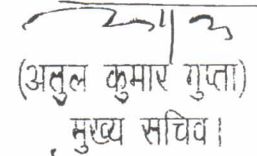 (अतुल कुमार गुप्ता)
मुख्य सचिव।